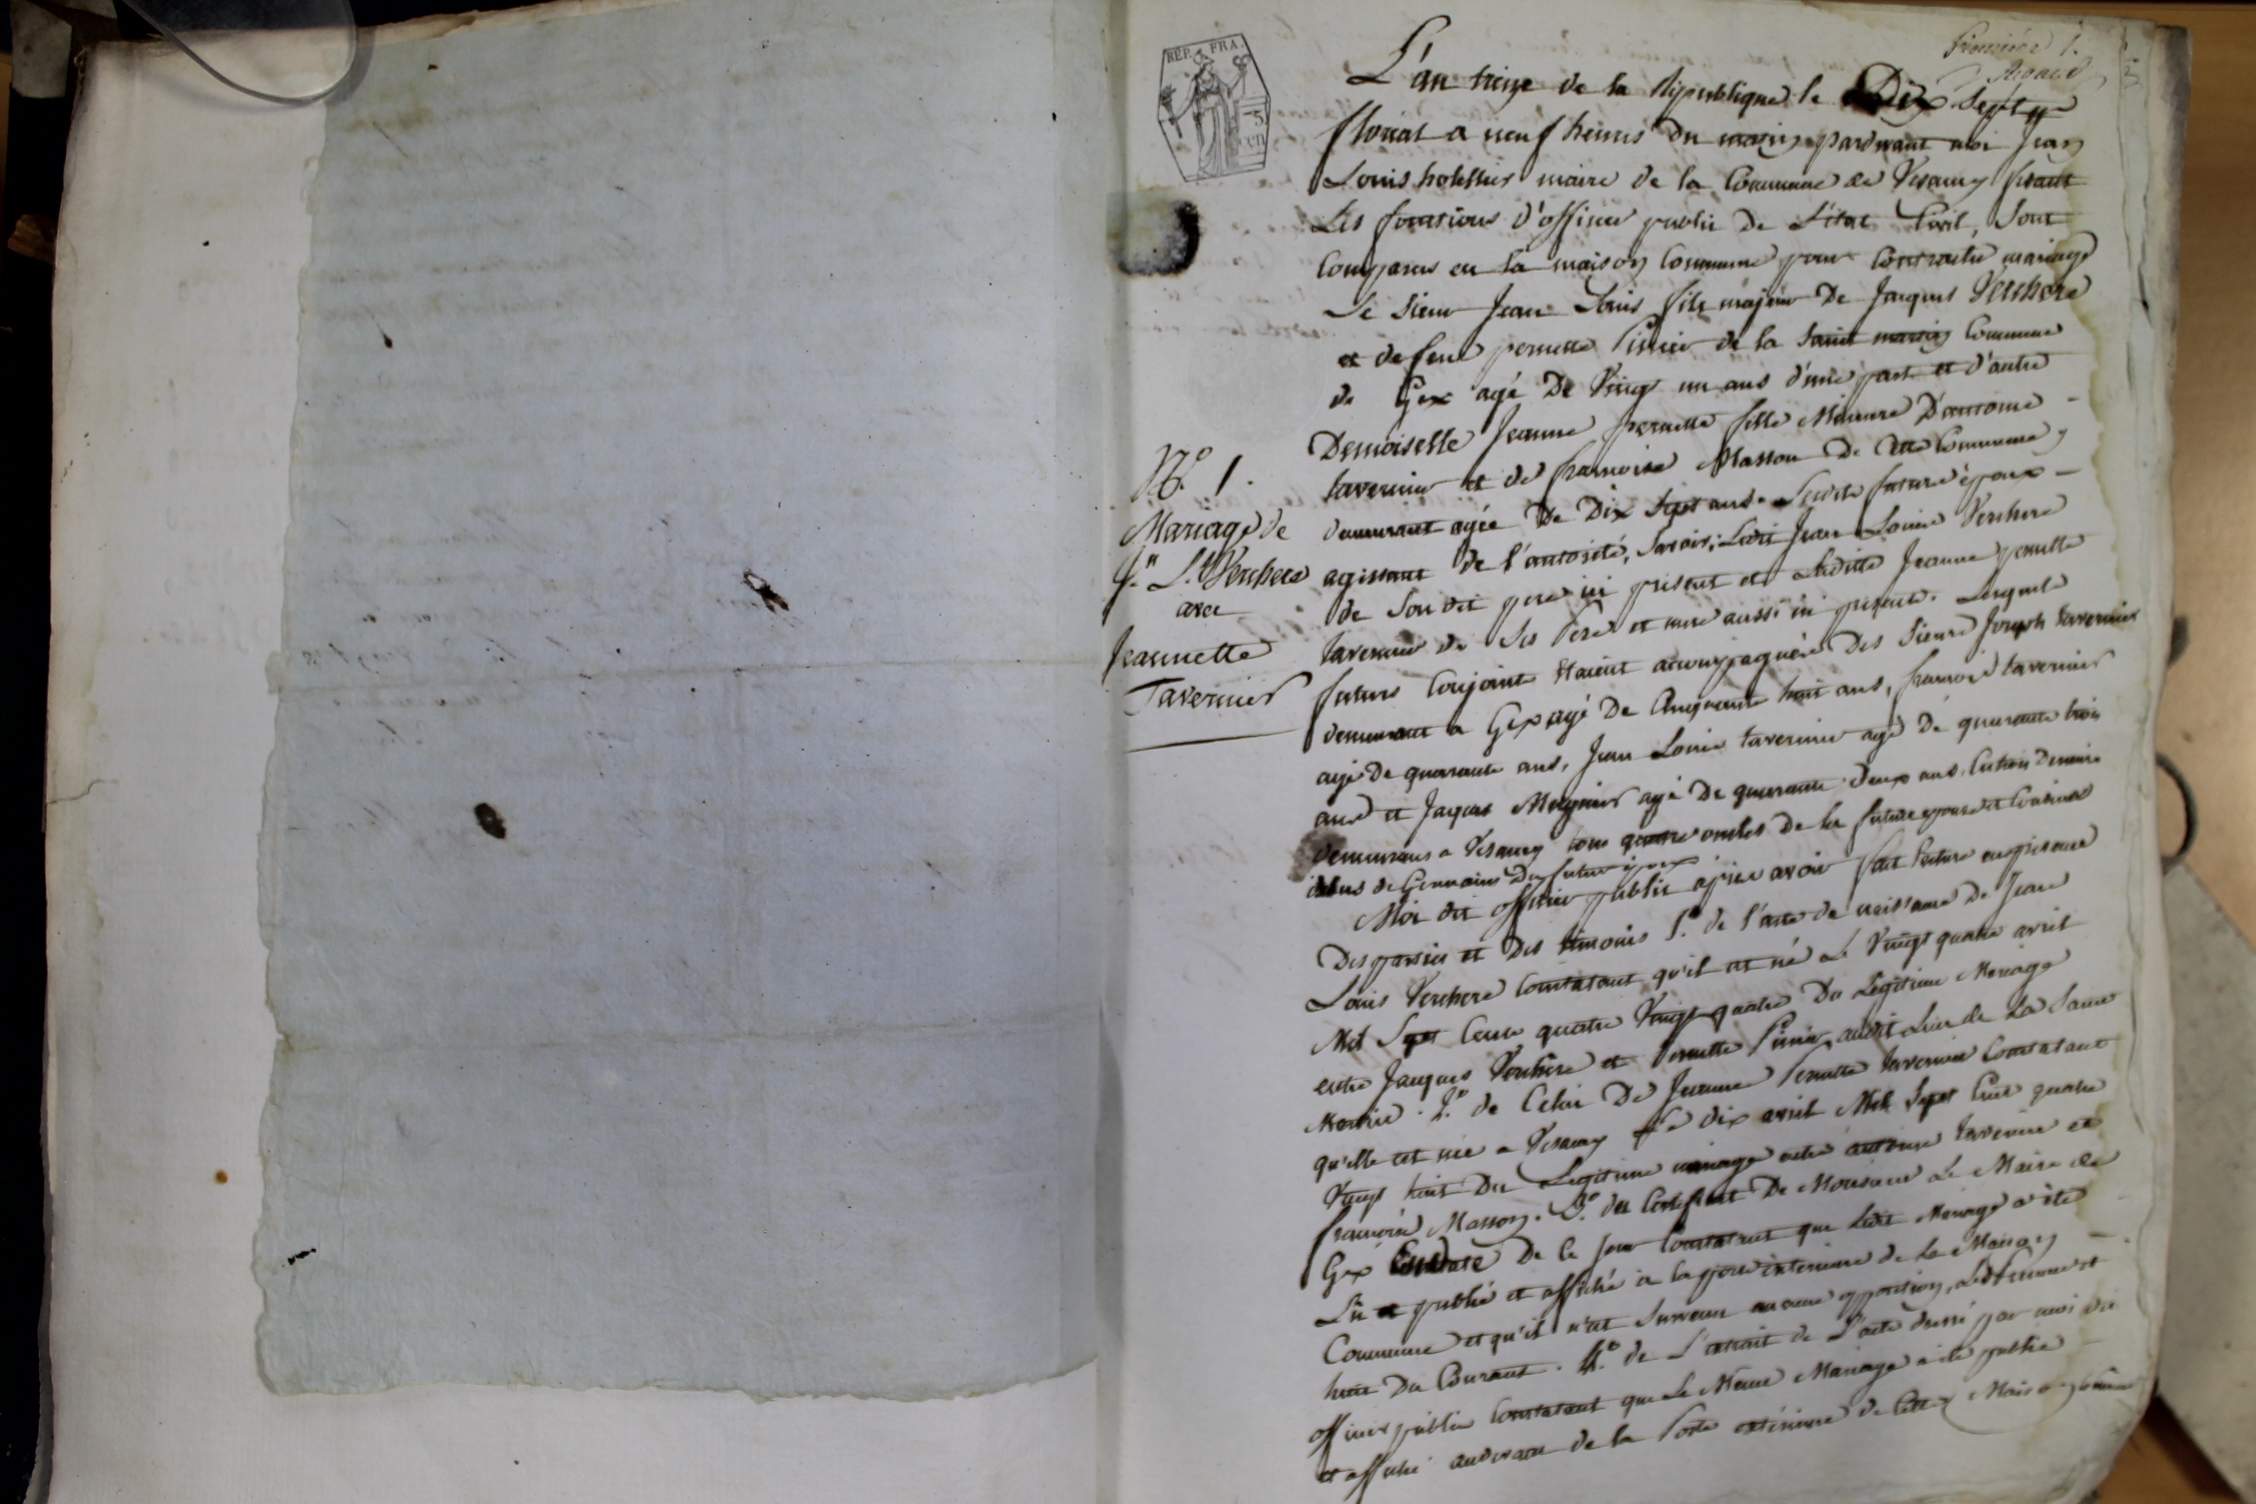 REP. FRA.
5
L'an treize de la République, le Dix Sept
floréal a neuf heures du matin pardevant moi Jean
Louis maire de la Commune de Vesancy fesant
Les fonctions d'officier public de L'état Civil, Sont
Comparus en la maison Commune pour Contracter mariage
Le Sieur Jean Louis fils majeur De Jacques Verchere
et de feue pernette de la Commune
de Gex agé De Vingt un ans d'une part et d'autre
Demoiselle Jeanne pernette fille Mineure D'antoine
tavernier et de francoise Masson De cette Commune y
demeurant agée De Dix Sept ans. Lesdits futurs époux
agissant de l'autorité, Savoir; Ledit Jean Louis Verchere
de Son dit pere ici présent et Ladite Jeanne pernette
tavernier de Ses Pere et mere aussi ici présents. Lesquels
futurs Conjoints étaient accompagnés Des Sieurs Joseph tavernier
demeurant a Gex agé De Cinquante huit ans, francois tavernier
agé De quarante ans, Jean Louis tavernier agé De quarante trois
ans et Jacques agé De quarante Deux ans,
demeurans a Vesancy tous quatre oncles De la future épouse et
de Germains Du futur époux
Moi dit officier public après avoir fait Lecture en présence
Des parties et Des témoins 1.º de l'acte de naissance De Jean
Louis Verchere Constatant qu'il est né Le Vingt quatre avril
Mil Sept Cent quatre Vingt quatre Du Légitime Mariage
entre Jacques Verchere et Pernette audit Lieu de La
2.º de Celui De Jeanne Pernette tavernier Constatant
qu'elle est née a Vesancy Le dix avril Mil Sept Cent quatre
Vingt huit Du Légitime mariage entre antoine tavernier et
francoise Masson. 3.º du Certificat De Monsieur Le Maire de
Gex De Ce jour Constatant que Ledit Mariage a été
Lu et publié et affiché à la porte exterieure de la Maison
Commune et qu'il n'est Survenu aucune opposition,
huit Du Courant. 4.º de L'extrait de L'acte dressé par moi dit
officier public Constatant que Le Même Mariage a été publié
et affiché audevant de la Porte extérieure de Cette Maison Commune
N.º 1.
Mariage de
J.n L.s Verchere
avec
Jeannette
Tavernier